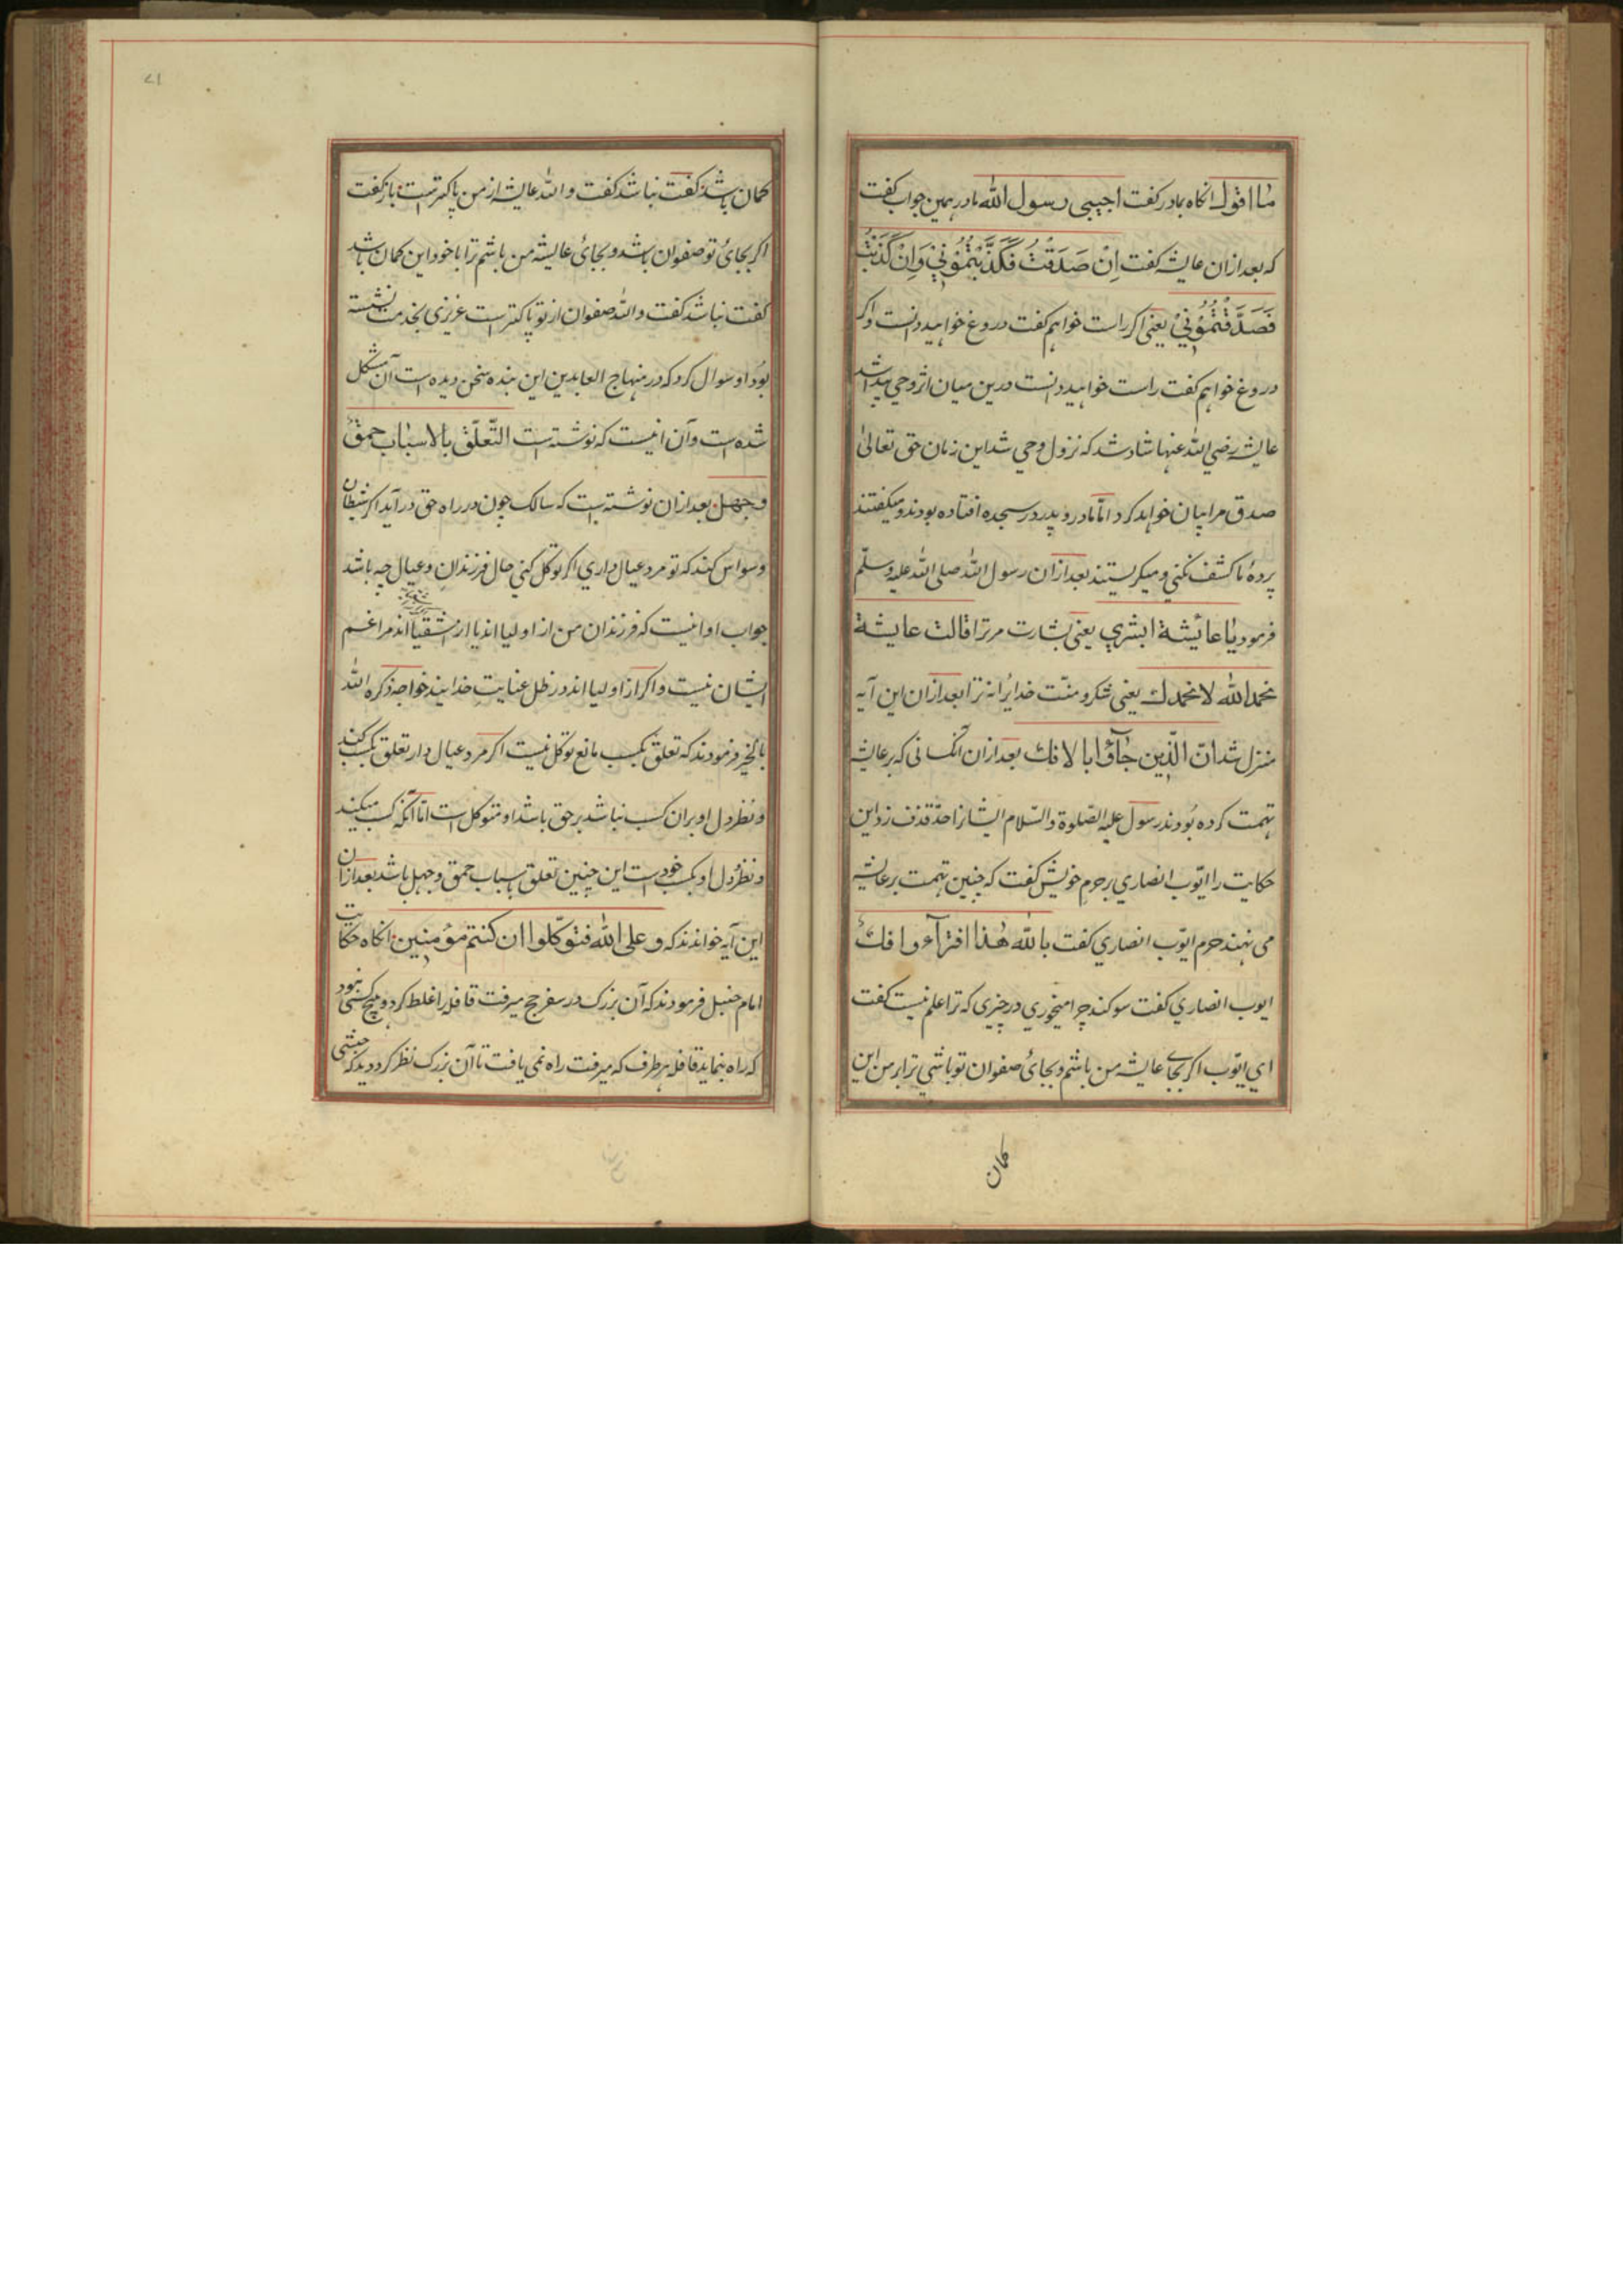 ما اقول انکاه بمادر کفت اجیبی رسول الله مادر همین جواب کفت
که بعد ازان عایشه کفت اِنْ صَدَقْتُ فَكَذَّبْتُمُوْنِيْ وَاِنْ كَذَبْتُ
فَصَدَّقْتُمُوْنِيْ یعنی اکر راست خواهم کفت دروغ خواهید دانست واکر
دروغ خواهم کفت راست خواهید دانست درین میان اثر وحي پیدا شد
عایشه رضي الله عنها شاد شد که نزول وحي شد این زمان حق تعالیٰ
صدق مرا بیان خواهد کرد امّا مادر و پدر در سجده افتاده بودند و میکفتند
پردهٔ ما کشف نکني و میکریستند بعد ازان رسول الله صلی الله علیه وسلّم
فرمود یا عائشة ابشري یعنی بشارت مر ترا قالت عایشة
نحمد الله لا نحمدك یعنی شکر و منّت خدایرا نه ترا بعد ازان این آیه
منزل شد انّ الّذین جآؤا بالافك بعد ازان آنکسانی که بر عایشه
تهمت کرده بودند رسول علیه الصّلوة والسّلام ایشانرا حدّ قذف زد این
حکایت را ایّوب انصاري بر حرم خویش کفت که چنین تهمت بر عایشه
می نهند حرم ایّوب انصاري کفت بالله هٰذا افترآء وافكٌ
ایوب انصاري کفت سوکند چرا میخوري در چیزی که ترا علم نیست کفت
اي ایّوب اکر بجاي عایشه من باشم و بجائ صفوان تو باشي ترا بر من این
کمان
کمان باشد کفت نباشد کفت والله عایشه از من پاکتر است باز کفت
اکر بجائ تو صفوان باشد و بجائ عایشه من باشم ترا با خود این کمان باشد
کفت نباشد کفت والله صفوان از تو پاکتر است عزیزی بخدمت نشسته
بود او سوال کرد که در منهاج العابدین این بنده سخن دیده است آن مشکل
شده است وآن اینست که نوشته است التّعلّق بالاسباب حمقٌ
وجهل بعد ازان نوشته است که سالک چون در راه حق در آید اکر شیطان
وسواس کند که تو مرد عیال داري اکر توکّل کني حال فرزندان و عیال چه باشد
جواب او اینست که فرزندان من از اولیا اند یا از اشقیا اند مرا غم
ایشان نیست واکر از اولیا اند در ظل عنایت خدایند خواجه ذکره الله
بالخیر فرمودند که تعلق بکسب مانع توکّل نیست اکر مرد عیال دار تعلق بکسب کند
و نظر دل او بران کسب نباشد بر حق باشد او متوکل است امّا آنکه کسب میکند
و نظر دل او بکسب خودست این چنین تعلق باسباب حمق و جهل باشد بعد ازان
این آیه خواندند که وعلی الله فتوکّلوا ان کنتم مؤمنین انکاه حکایت
امام حنبل فرمودند که آن بزرک در سفر حج میرفت قافله راه غلط کرد و هیچ کسی نبود
که راه بنماید قافله هر طرف که میرفت راه نمی یافت تا آن بزرک نظر کرد دید که حبشی